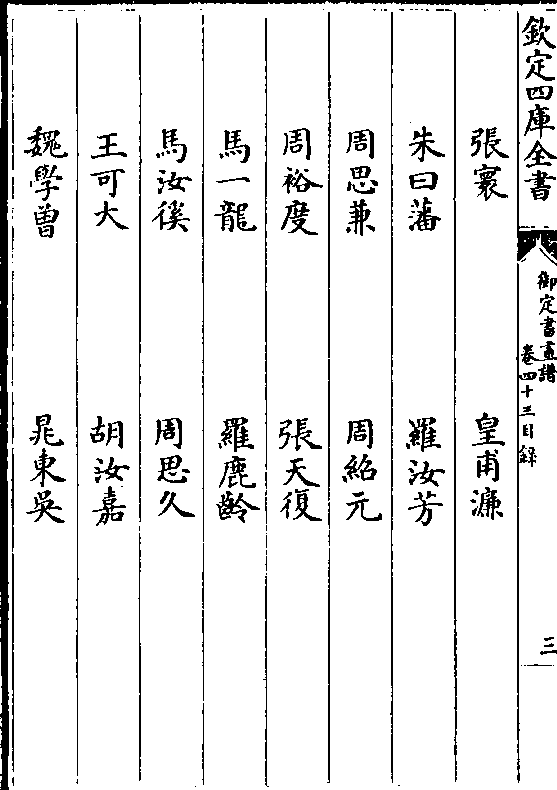 欽定四庫全書
御定書畫譜
卷四十三目録
三
張寰 皇甫濂
朱曰藩 羅汝芳
周思兼 周紹元
周裕度 張天復
馬一龍 羅鹿齡
馬汝徯 周思久
王可大 胡汝嘉
魏學曾 晁東吳